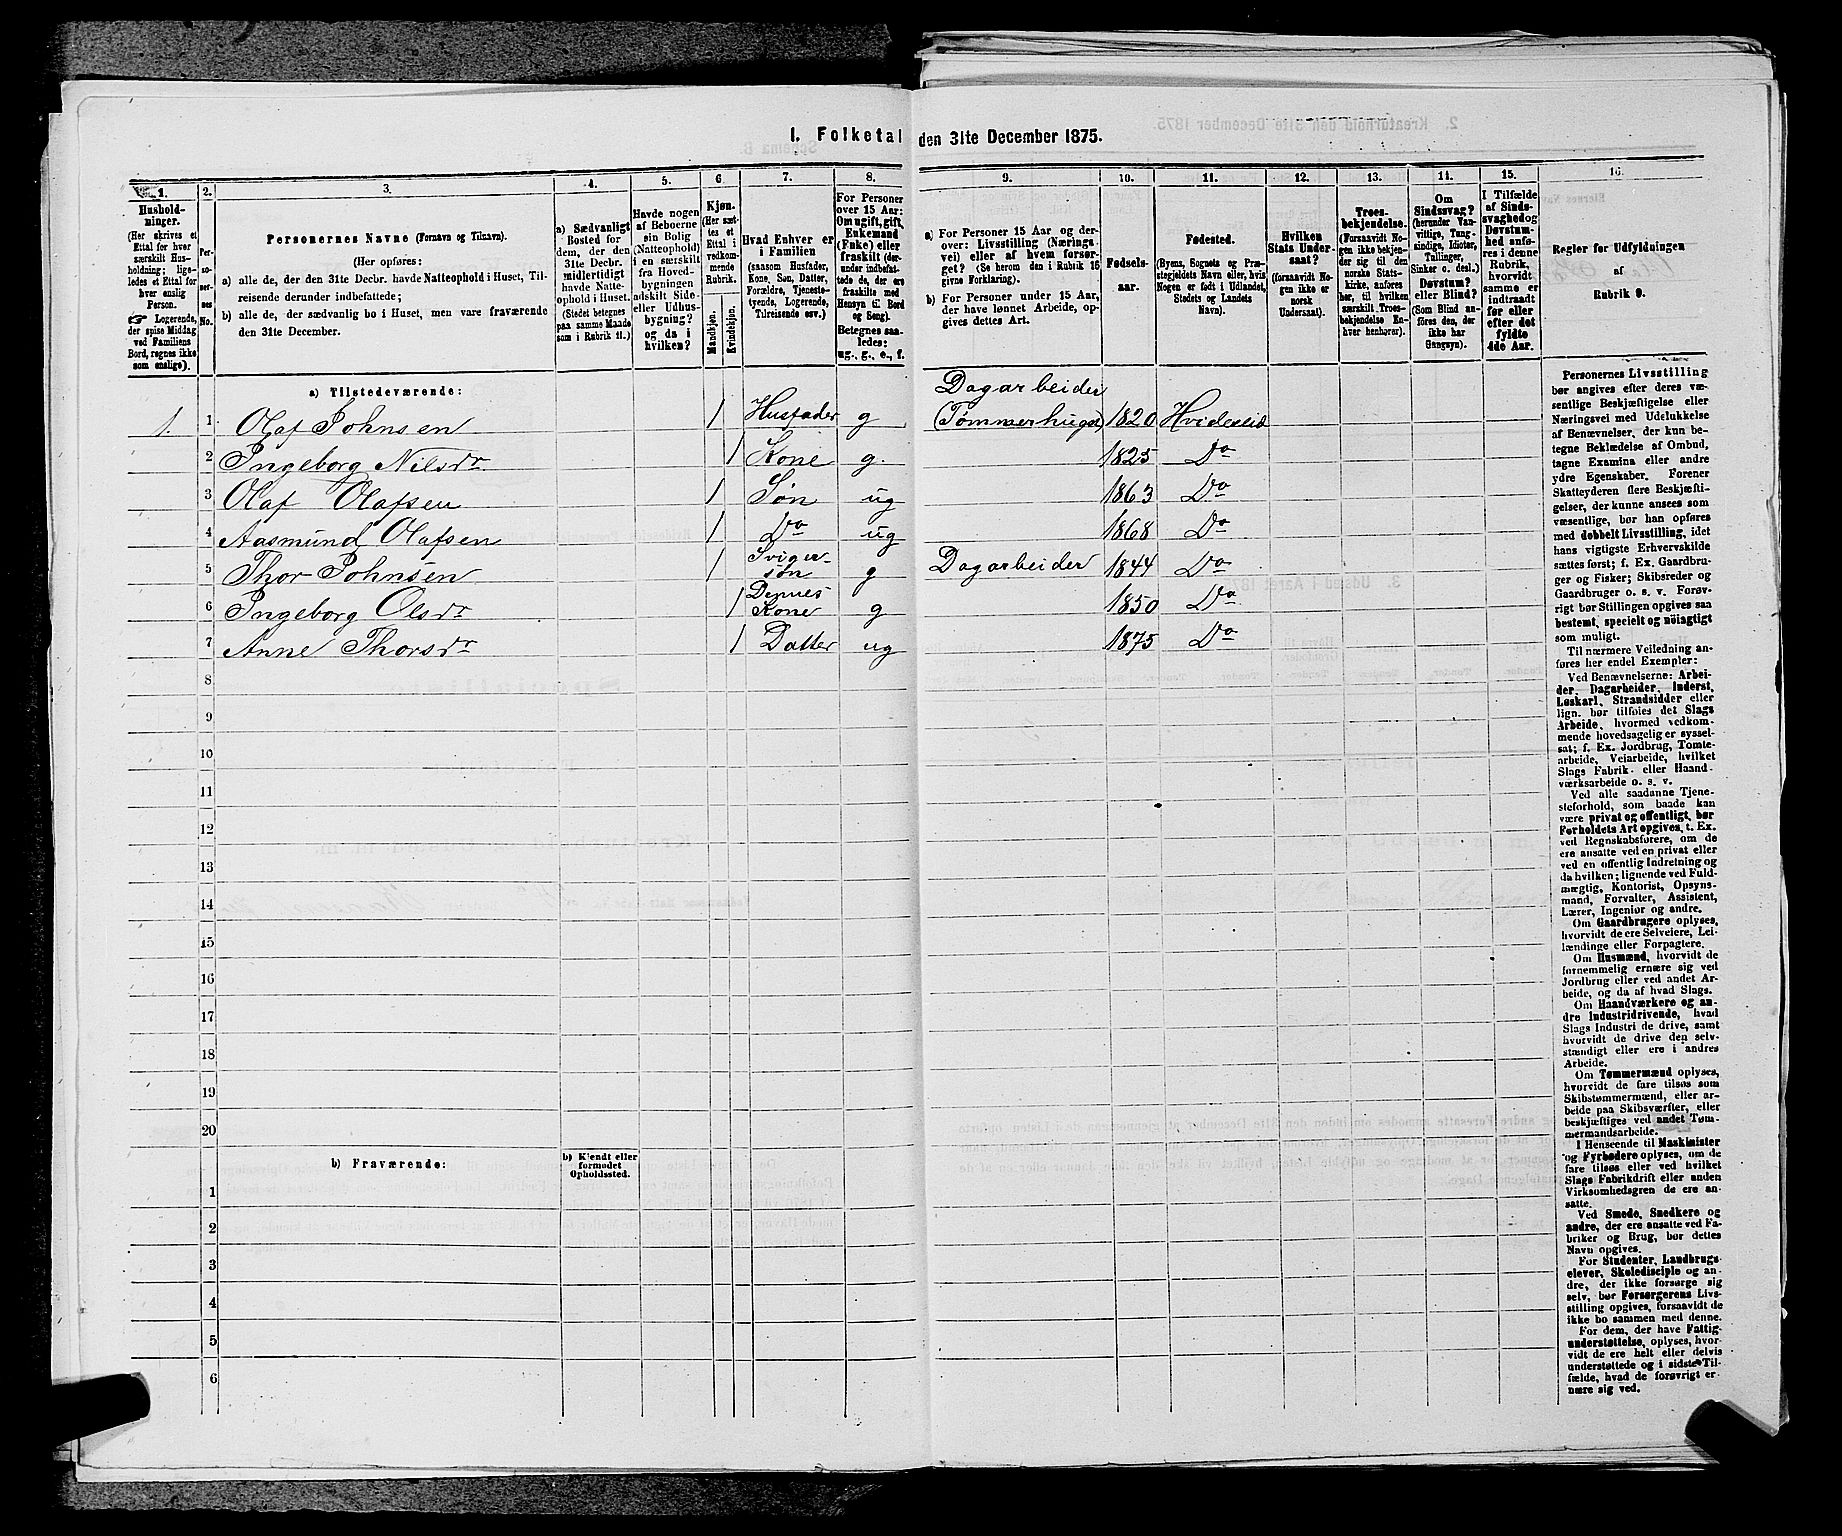 1. Folketal den 31te December 1875.
1. 2. 3. 4. 5. 6. 7. 8. 9. 10. 11. 12. 13. 14. 15. 16.
Husholdninger.
(Her skrives et
Ettal for hver
særskilt Husholdning;
ligeledes et Ettal for
hver enslig
Person.
Logerende,
der spise Middag
ved Familiens
Bord, regnes ikke
som enslige).
Personernes No.
Personernes Navne (Fornavn og Tilnavn).
(Her opføres:
a) alle de, der den 31te Decbr. havde Natteophold i Huset, Tilreisende derunder indbefattede;
b) alle de, der sædvanlig bo i Huset, men vare fraværende
den 31te December.
a) Sædvanligt
Bosted for
dem, der den
31te Decbr.
midlertidigt
havde Natteophold
i Huset.
(Stedet betegnes
paa samme Maade
som i Rubrik 11.)
Havde nogen
af Beboerne
sin Bolig
(Natteophold)
i en særskilt
fra Hovedbygningen
adskilt Side-
eller Udhusbygning?
og da i
hvilken?
Kjøn.
(Her sættes
et
Ettal i
vedkommende
Rubrik.
Mandkjøn.
Kvindekjøn.
Hvad Enhver er
i Familien
(saasom Husfader,
Kone, Søn, Datter,
Forældre, Tjenestetyende,
Logerende,
Tilreisende osv.)
For Personer
over 15 Aar:
Om ugift, gift,
Enkemand
(Enke) eller
fraskilt (derunder
indbefattede
de, der ere
fraskilte med
Hensyn til Bord
og Seng).
Betegnes saaledes:
ug., g., e., f.
a) For Personer 15 Aar og derover:
Livsstilling (Næringsvei)
eller af hvem forsørget?
(Se herom den i Rubrik 16
givne Forklaring).
b) For Personer under 15 Aar,
der have lønnet Arbeide, opgives
dettes Art.
Fødselsaar.
Fødested.
(Byens, Sognets og Præstegjeldets
Navn eller, hvis
Nogen er født i Udlandet,
Stedets og Landets
Navn).
Hvilken
Stats Undersaat?
(forsaavidt Nogen
ikke er
norsk
Undersaat).
Troesbekjendelse.
(Forsaavidt Nogen
ikke bekjender
sig til den
norske Statskirke,
anføres
her, til hvilken
særskilt Troesbekjendelse
Enhver
henhører).
Om
Sindssvag?
(herunder Vanvittige,
Tungsindige,
Idioter,
Tullinger,
Sinker o. desl.)
Døvstum?
eller Blind?
(Som Blind anføres
den, der
ikke har
Gangsyn).
I Tilfælde
af Sindssvaghed
og
Døvstumhed
anføres
i denne
Rubrik,
hvorvidt
samme er
indtraadt
før eller
efter det
fyldte
4de Aar.
Regler for Udfyldningen
af
Rubrik 9.
a) Tilstedeværende:
1. 1 Olaf Johnsen 1 Husfader g Dagarbeider (Tømmerhugst) 1820 Hvideseid
2 Ingeborg Nilsdr 1 Kone g. 1825 Do
3 Olaf Olafsen 1 Søn ug 1863 Do
4 Aasmund Olafsen 1 Do ug 1868 Do
5 Thor Johnsen 1 Svigersøn g Dagarbeider 1844 Do
6 Ingeborg Olsdr 1 Dennes Kone g 1850 Do
7 Anne Thorsdr 1 Datter ug 1875 Do
8
9
10
11
12
13
14
15
16
17
18
19
20
b) Fraværende:
b) Kjendt eller
formodet
Opholdssted.
1
2
3
4
5
6
Personernes Livsstilling
bør angives efter deres væsentlige
Beskjæftigelse eller
Næringsvei med Udelukkelse
af Benævnelser, der kun betegne
Beklædelse af Ombud,
tagne Examina eller andre
ydre Egenskaber. Forener
Skatteyderen flere Beskjæftigelser,
der kunne ansees som
væsentlige, bør han opføres
med dobbelt Livsstilling, idet
hans vigtigste Erhvervskilde
sættes først; f. Ex. Gaardbruger
og Fisker; Skibsreder og
Gaardbruger o. s. v. Forøvrigt
bør Stillingen opgives saa
bestemt, specielt og nöiagtigt
som muligt.
Til nærmere Veiledning anføres
her endel Exempler:
Ved Benævnelserne: Arbeider,
Dagarbeider, Inderst,
Løskarl, Strandsidder eller
lign. bør tilføies det Slags
Arbeide, hvormed vedkommende
hovedsagelig er sysselsat;
f. Ex. Jordbrug, Tomtearbeide,
Veiarbeide, hvilket
Slags Fabrik- eller Haandværksarbeide
o. s. v.
Ved alle saadanne Tjenesteforhold,
som baade kan
være privat og offentligt, bør
Forholdets Art opgives, t. Ex.
ved Regnskabsførere, om de
ere ansatte ved en privat eller
ved en offentlig Indretning og
da hvilken; lignende ved Fuldmægtig,
Kontorist, Opsynsmand,
Forvalter, Assistent,
Lærer, Ingeniør og andre.
Om Gaardbrugere oplyses,
hvorvidt de ere Selveiere, Leilændinge
eller Forpagtere.
Om Husmænd, hvorvidt de
fornemmelig ernære sig ved
Jordbrug eller ved andet Arbeide,
og da af hvad Slags.
Om Haandværkere og andre
Industridrivende, hvad
Slags Industri de drive, samt
hvorvidt de drive den selvstændigt
eller ere i andres
Arbeide.
Om Tømmermænd oplyses,
hvorvidt de fare tilsøs som
Skibstømmermænd, eller arbeide
paa Skibsværfter, eller
beskjæftiges ved andet Tømmermandsarbeide.
I Henseende til Maskinister
og Fyrbødere oplyses, om de
fare tilsøs eller ved hvilket
Slags Fabrikdrift eller anden
Virksomhedsgren de ere ansatte.
Ved Smede, Snedkere og
andre, der ere ansatte ved Fabriker
og Brug, bør dettes
Navn opgives.
For Studenter, Landbrugselever,
Skoledisciple og andre,
der ikke forsørge sig
selv, bør Forsørgerens Livsstilling
opgives, forsaavidt de
ikke bo sammen med denne.
For dem, der have Fattigunderstøttelse,
oplyses, hvorvidt
de ere helt eller delvis
understøttede og i sidste Tilfælde,
hvad de forøvrigt ernære
sig ved.